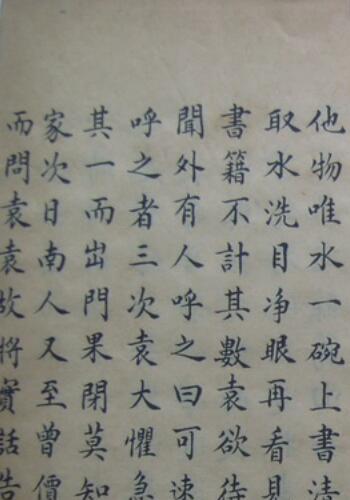 他物唯水一碗上書清
取水洗目净眼再看見
書籍不計其數袁欲待
聞外有人呼之曰可速
呼之者三次袁大懼急
其一而出門果閉莫知
家次日南人又至曾價
而問袁袁故將實話告